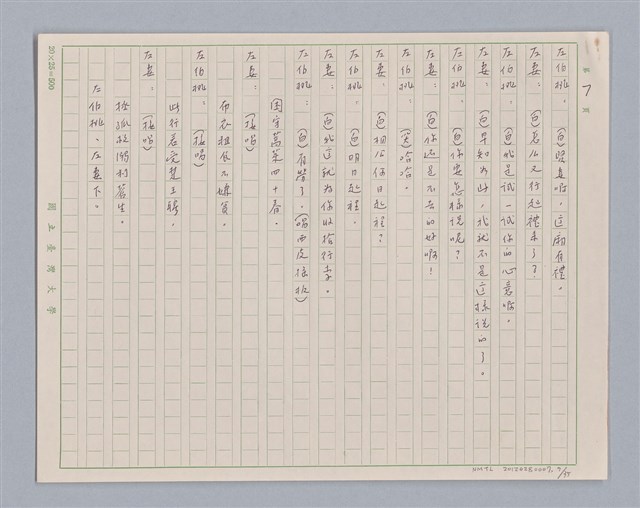 第 7 頁
左伯桃：（白）賢妻啊，這廂有禮。
左妻：（白）怎么又行起禮來了？
左伯桃：（白）我是試一試你的心意啊。
左妻：（白）早知如此，我就不是這樣說的了。
左伯桃：（白）你要怎樣說呢？
左妻：（白）你還是不去的好啊！
左伯桃：（笑）哈哈。
左妻：（白）相公何日起程？
左伯桃：（白）明日起程。
左妻：（白）我這就為你收拾行李。
左伯桃：（白）有勞了。（唱西皮搖板）
固守萬菜四十春。
左妻：（接唱）
布衣粗食不嫌貧。
左伯桃：（接唱）
此行若受楚王聘。
左妻：（接唱）
拯孤救溺利蒼生。
左伯桃、左妻下。
20×25=500
國立臺灣大學
NMTL 20120280007, 7/35